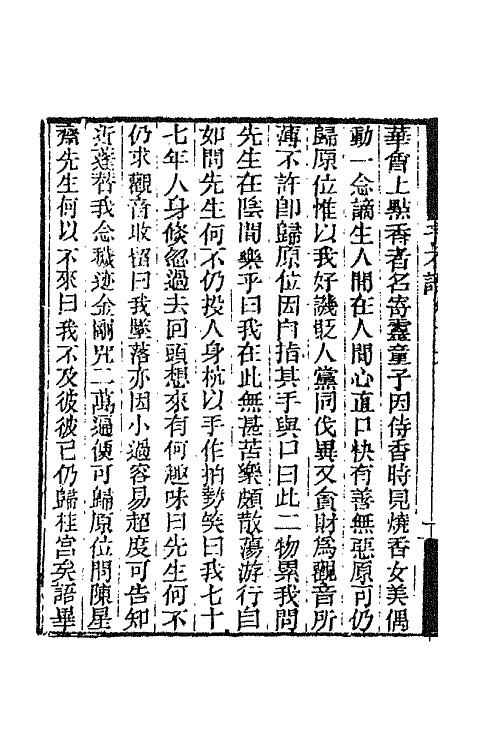 華胄上點香者名寄靈童子因侍香時見燒香女美偶
動一念謫生人間在人間心直口快有善無惡原可仍
歸原位惟以我好譏貶人黨同伐異又貪財為觀音所
薄不許即歸原位因自指其手與口曰此二物累我問
先生在陰間樂乎曰我在此無甚苦樂頗散蕩游行自
如問先生何不仍投人身杭以手作拍勢笑曰我七十
七年人身倏忽過去回頭想來有何趣味曰先生何不
仍求觀音收留曰我墜落亦因小過容易超度可告知
近蓬替我念穢迹金剛咒二萬遍便可歸原位問陳星
齋先生何以不來曰我不及彼彼已仍歸桂宫矣語畢